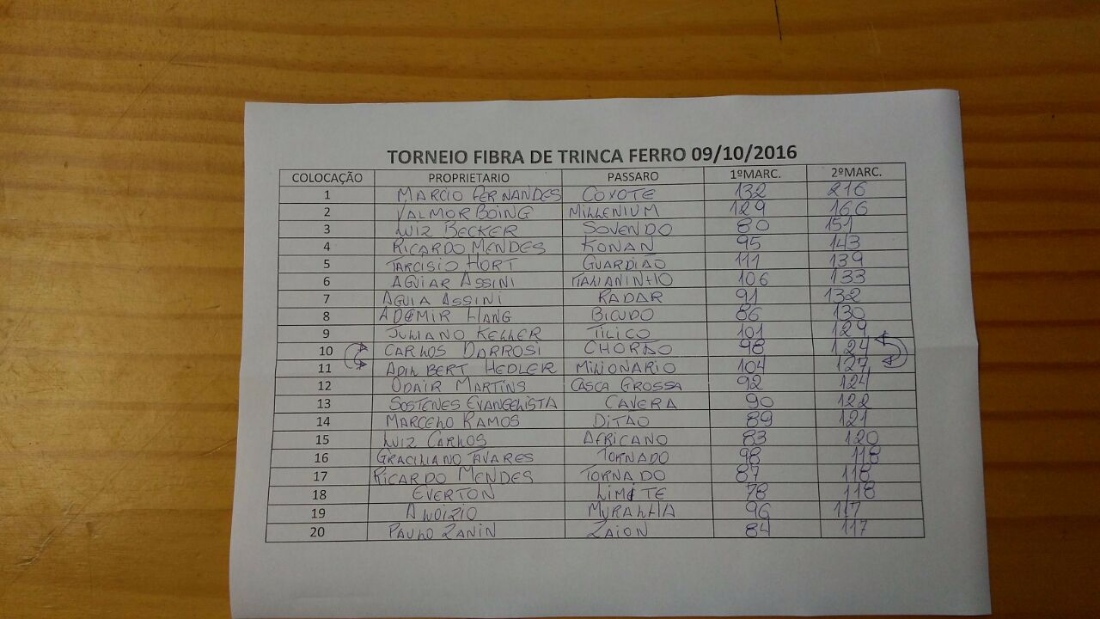 TORNEIO FIBRA DE TRINCA FERRO 09/10/2016
COLOCAÇÃO PROPRIETARIO PASSARO 1ºMARC. 2ºMARC.
1 MARCIO FERNANDES COYOTE 132 216
2 VALMOR BOING MILLENIUM 129 166
3 LUIZ BECKER SOVENDO 80 151
4 RICARDO MENDES KONAN 95 143
5 TARCISIO HORT GUARDIÃO 111 139
6 AGUIAR ASSINI 106 133
7 AGUIA ASSINI RADAR 91 132
8 ADEMIR HANG BICUDO 86 130
9 JULIANO KELLER TILICO 101 129
10 CARLOS DARROSI CHORÃO 98 124
11 HEDLER MILIONARIO 104 127
12 ODAIR MARTINS CASCA GROSSA 92 124
13 SOSTENES EVANGELISTA CAVERA 90 122
14 MARCELO RAMOS DITÃO 89 121
15 LUIZ CARLOS AFRICANO 83 120
16 GRACILIANO TAVARES TORNADO 98 118
17 RICARDO MENDES TORNADO 87 118
18 EVERTON LIMITE 78 118
19 ALOIZIO MURALHA 96 117
20 PAULO ZANIN ZAION 84 117